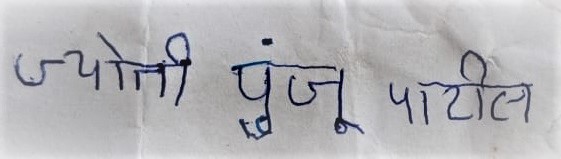 ज्योती पुंजू पाटील